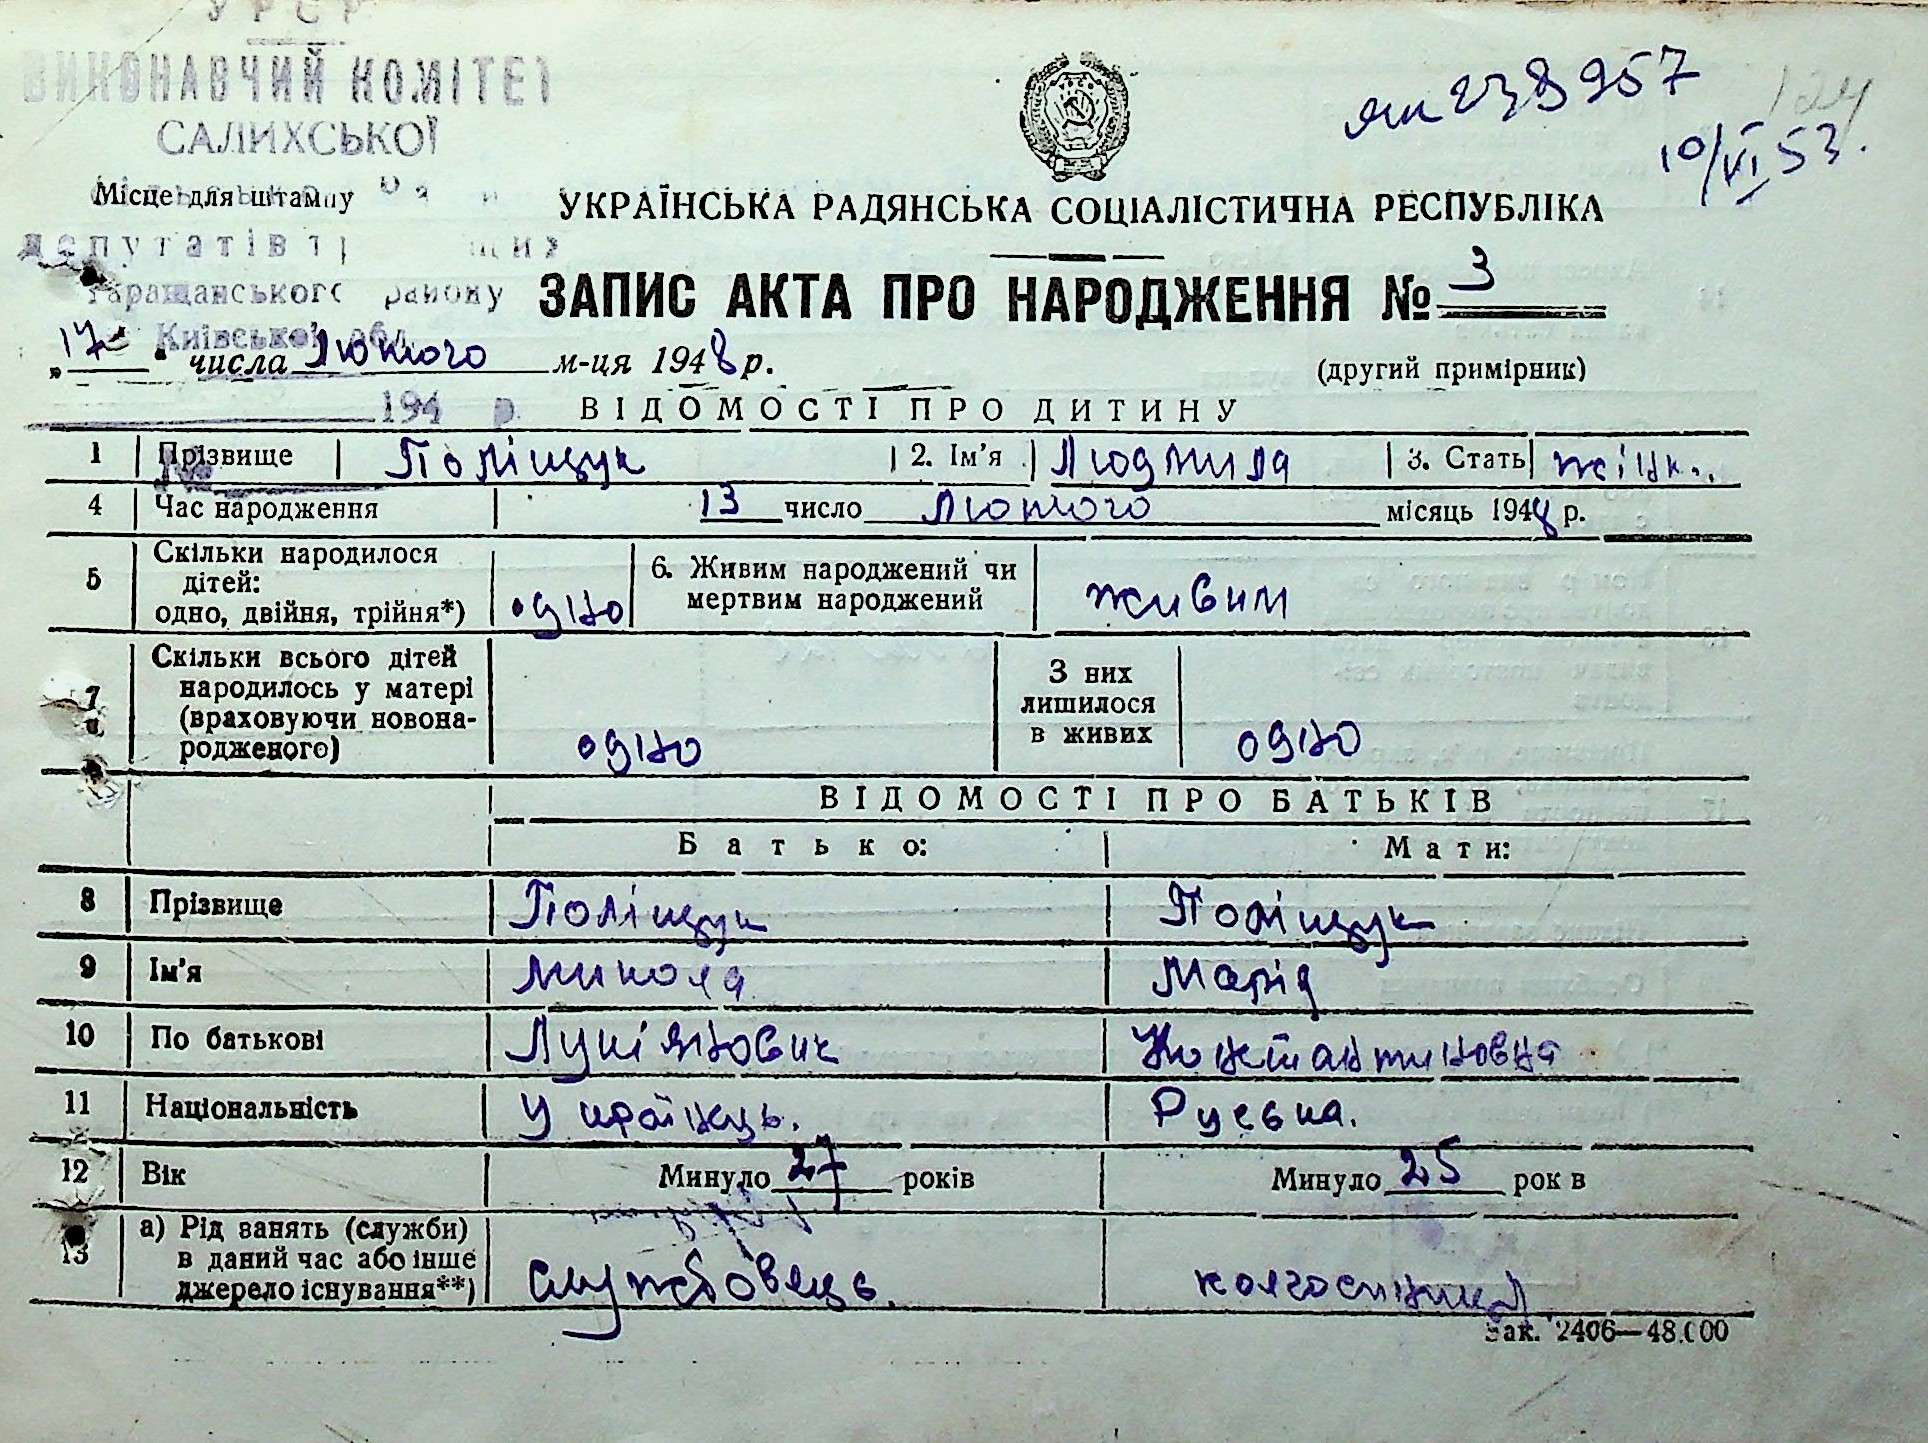 УРСР
ВИКОНАВЧИЙ КОМІТЕТ
САЛИХСЬКОЇ
Місце для штампу
депутатів
Таращанського району
Київської обл.
194 р.
ЯШ 238957
124
10/VI 53.
УКРАЇНСЬКА РАДЯНСЬКА СОЦІАЛІСТИЧНА РЕСПУБЛІКА
ЗАПИС АКТА ПРО НАРОДЖЕННЯ № 3
„17“ числа Лютого м-ця 1948 р.
(другий примірник)
ВІДОМОСТІ ПРО ДИТИНУ
1 Прізвище Поліщук 2. Ім'я Людмила 3. Стать жінк.
4 Час народження 13 число Лютого місяць 1948 р.
5 Скільки народилося дітей: одно, двійня, трійня*) одно 6. Живим народжений чи мертвим народжений живим
7 Скільки всього дітей народилось у матері (враховуючи новонародженого) одно З них лишилося в живих одно
ВІДОМОСТІ ПРО БАТЬКІВ
Батько: Мати:
8 Прізвище Поліщук Поліщук
9 Ім'я Микола Марія
10 По батькові Лукіянович Константиновна
11 Національність Українець. Руська.
12 Вік Минуло 27 років Минуло 25 рок в
13 а) Рід занять (служби) в даний час або інше джерело існування**) службовець. колгоспниця
Зак. 2406—48.000